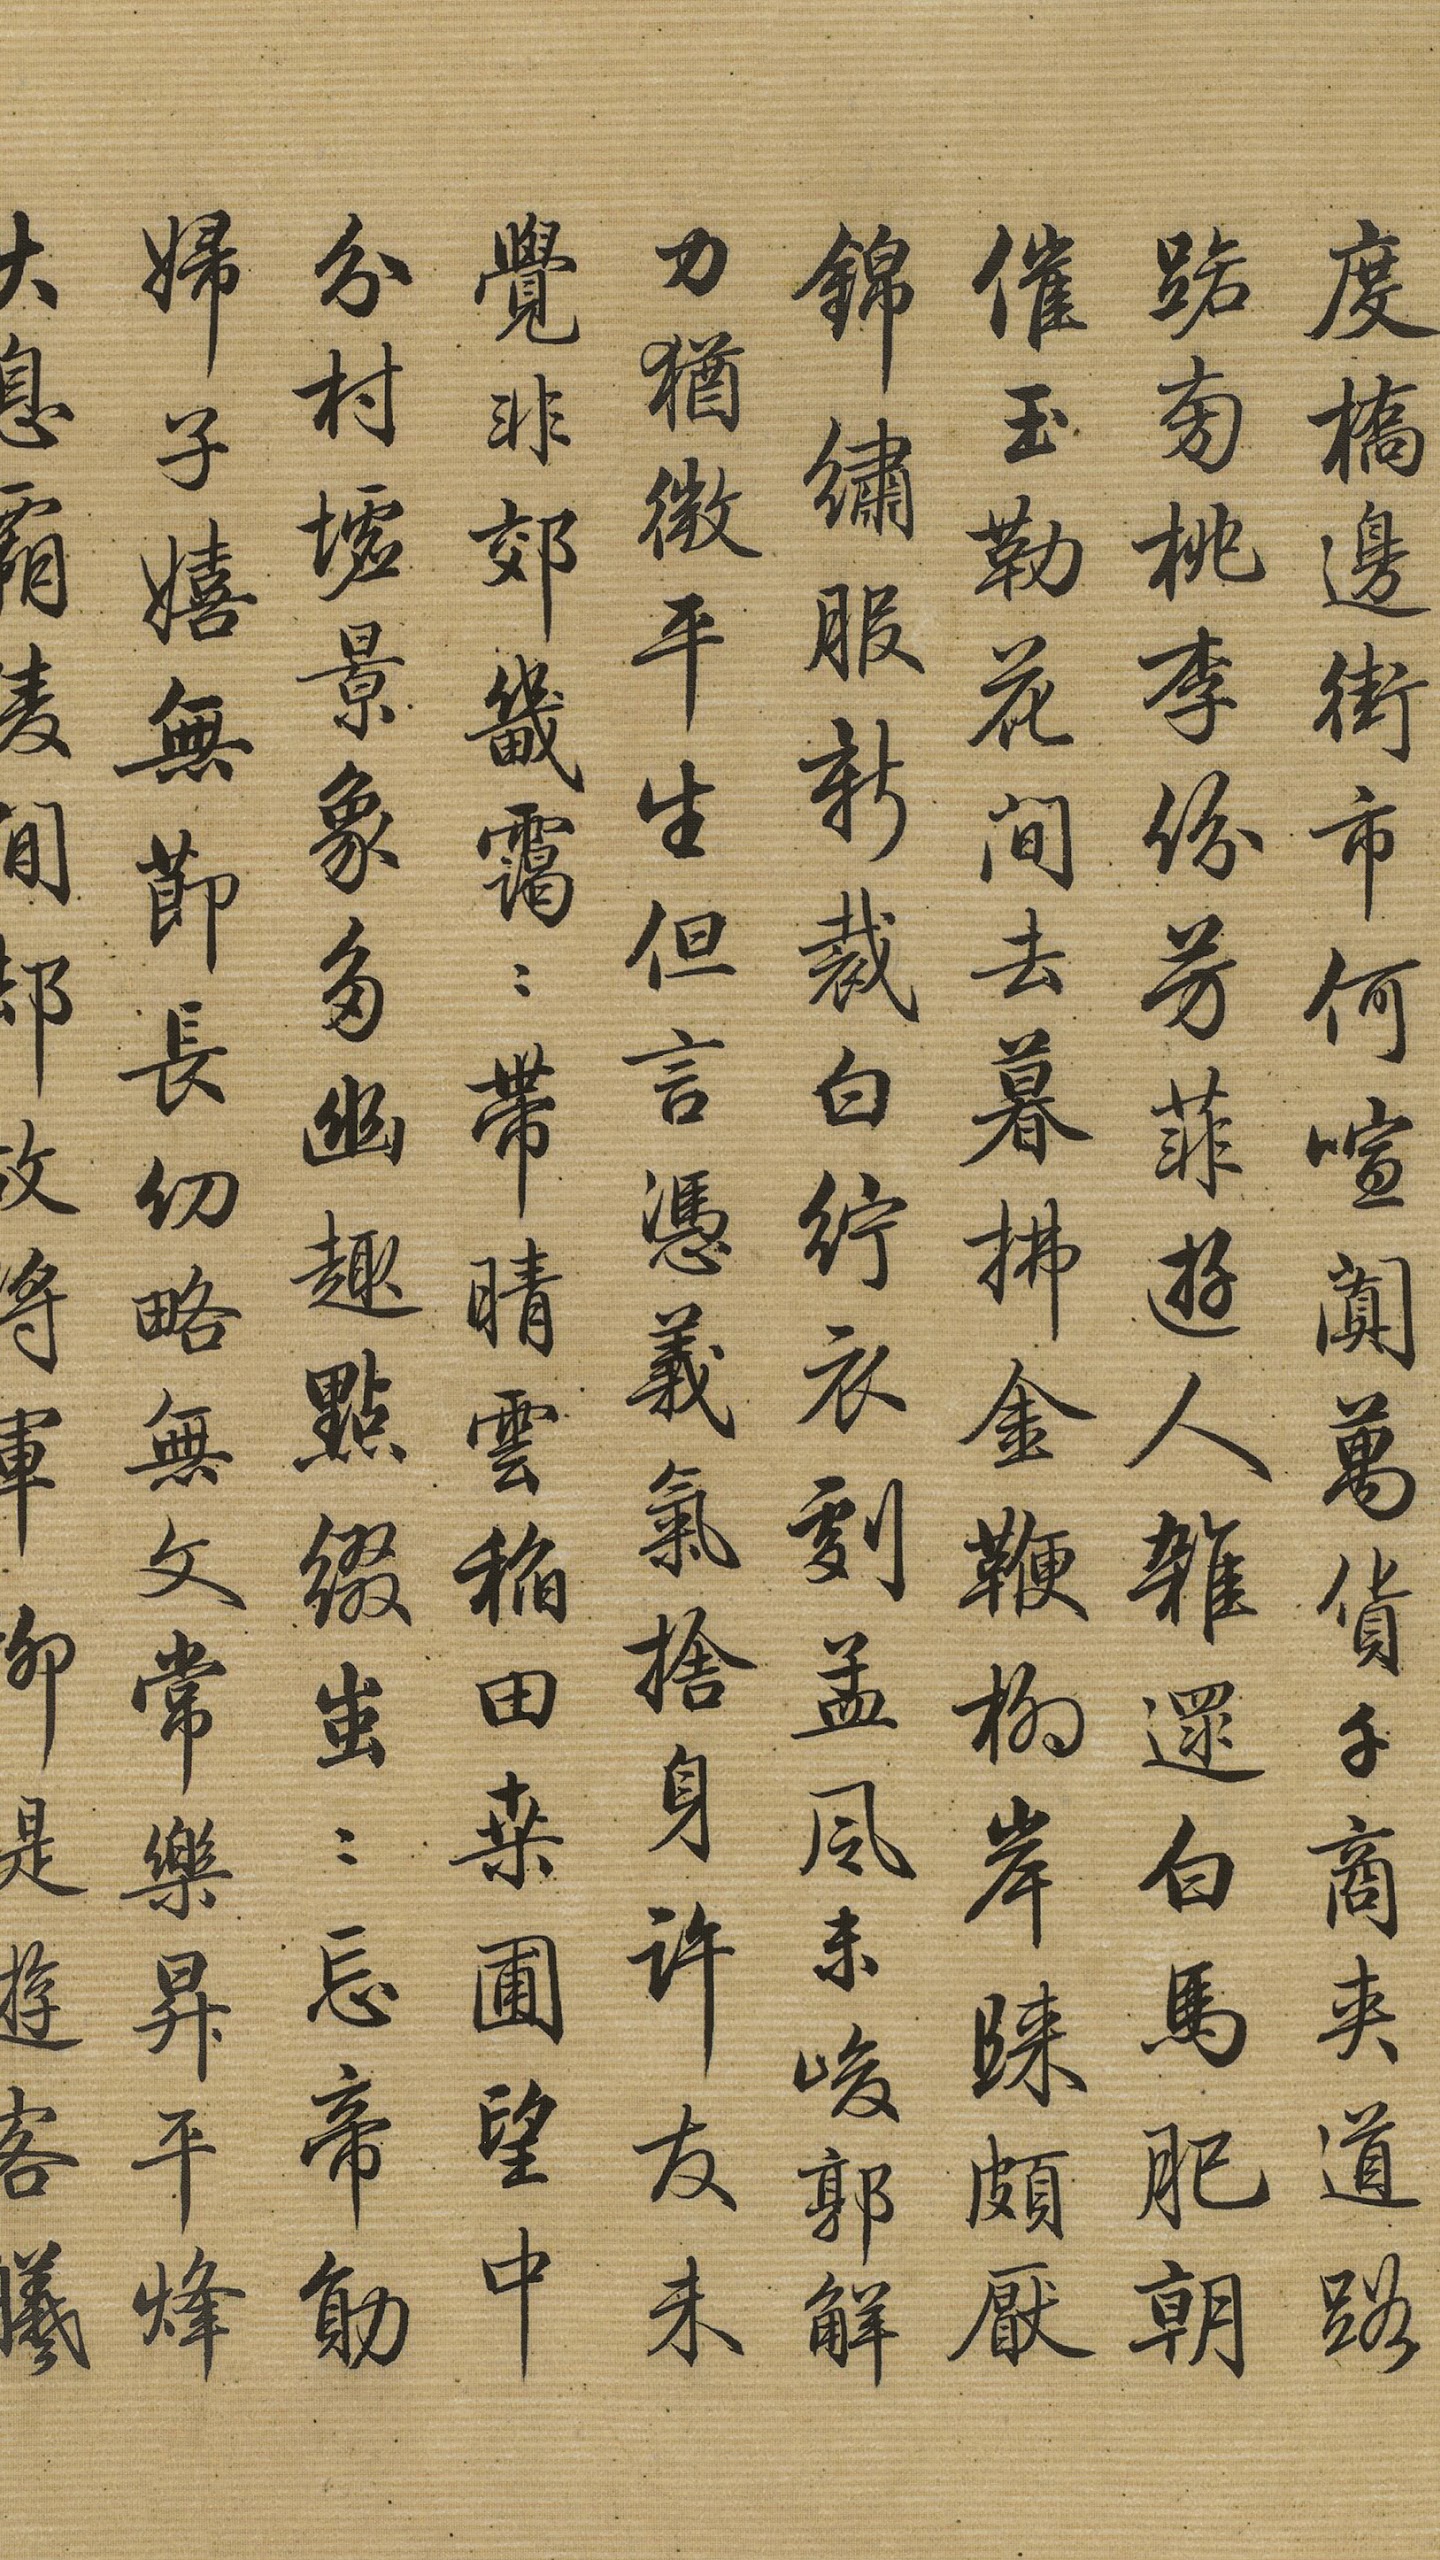 度橋邊街市何喧闐萬貨千商夾道路
踞匊桃李份芳菲遊人雜遝白馬肥朝
催玉勒花間去暮拂金鞭柳岸睐頗厭
錦繡服新裁白紵衣劇孟風未峻郭解
力猶微平生但言憑義氣捨身許友未
覺非郊畿靄〻帶晴雲稻田桒圃望中
分村墟景象多幽趣點綴蚩〻忘帝勛
婦子嬉無節長幼略無文常樂昇平烽
大息霸陵間却故將軍卯是遊客曦